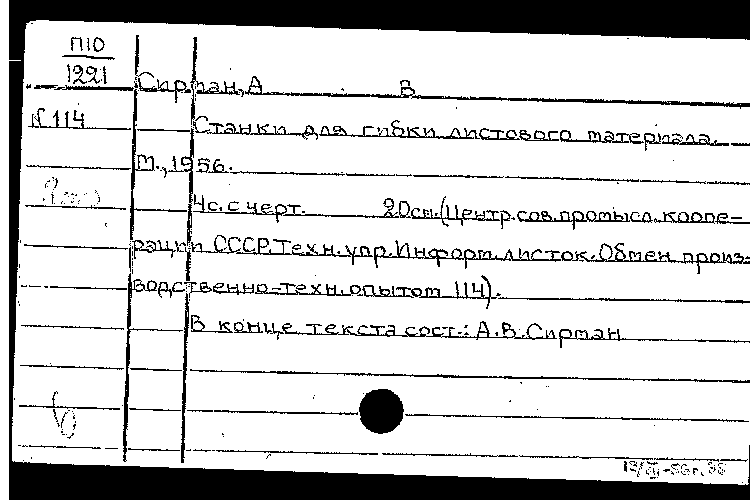 П10
1221
Сирман, А В
№ 114
Станки для гибки листового материала.
М., 1956.
4с. с черт. 20см. (Центр. сов. промысл. коопе-
рации СССР. Техн. упр. Информ. листок. Обмен произ-
водственно-техн. опытом 114).
В конце текста сост.: А.В. Сирман